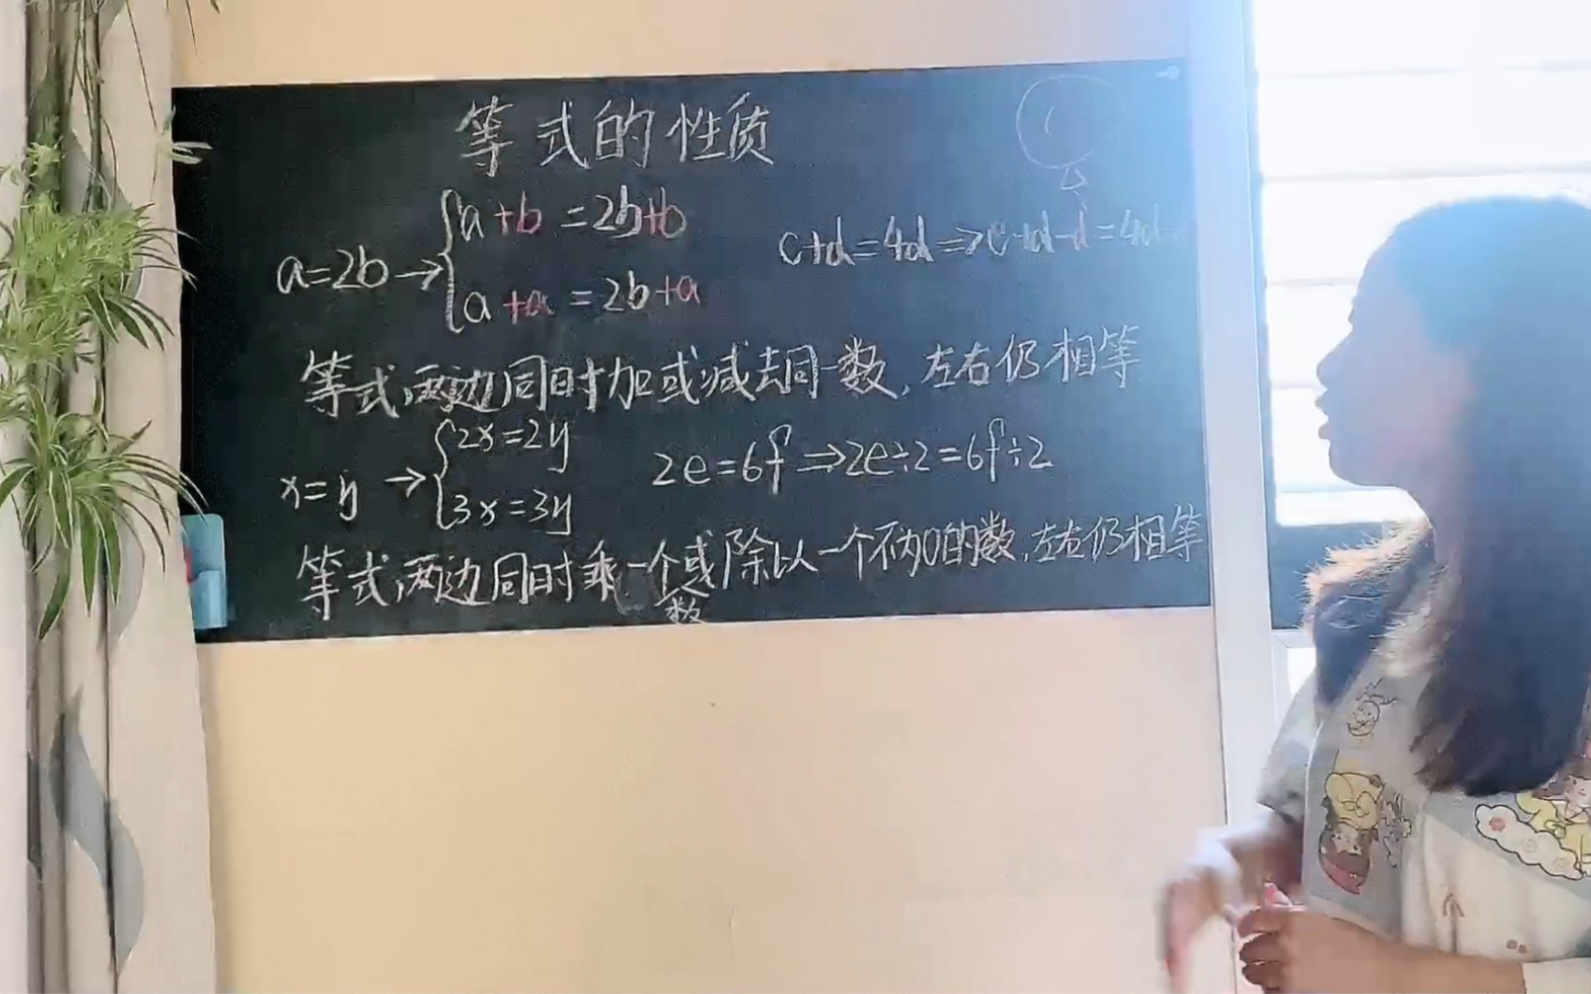 等式的性质
a=2b→{a+b=2b+b
a+a=2b+a
c+d=4d⇒c+d-d=4d-
等式两边同时加或减去同一数,左右仍相等
x=y→{2x=2y
3x=3y
2e=6f⇒2e÷2=6f÷2
等式两边同时乘一个或除以一个不为0的数,左右仍相等
数